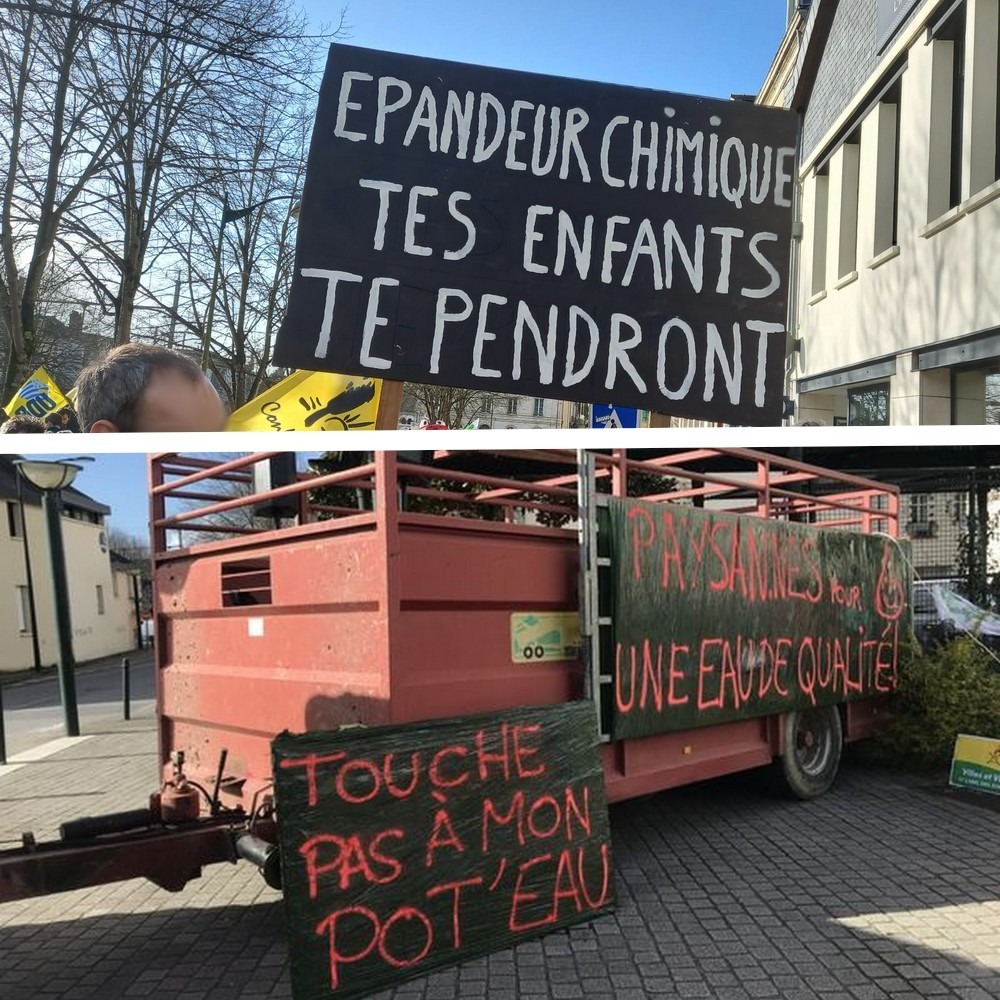 EPANDEUR CHIMIQUE
TES ENFANTS
TE PENDRONT
Con
PAYSANNES POUR
UNE EAU DE QUALITÉ!
TOUCHE
PAS À MON
POT'EAU
Villes et V